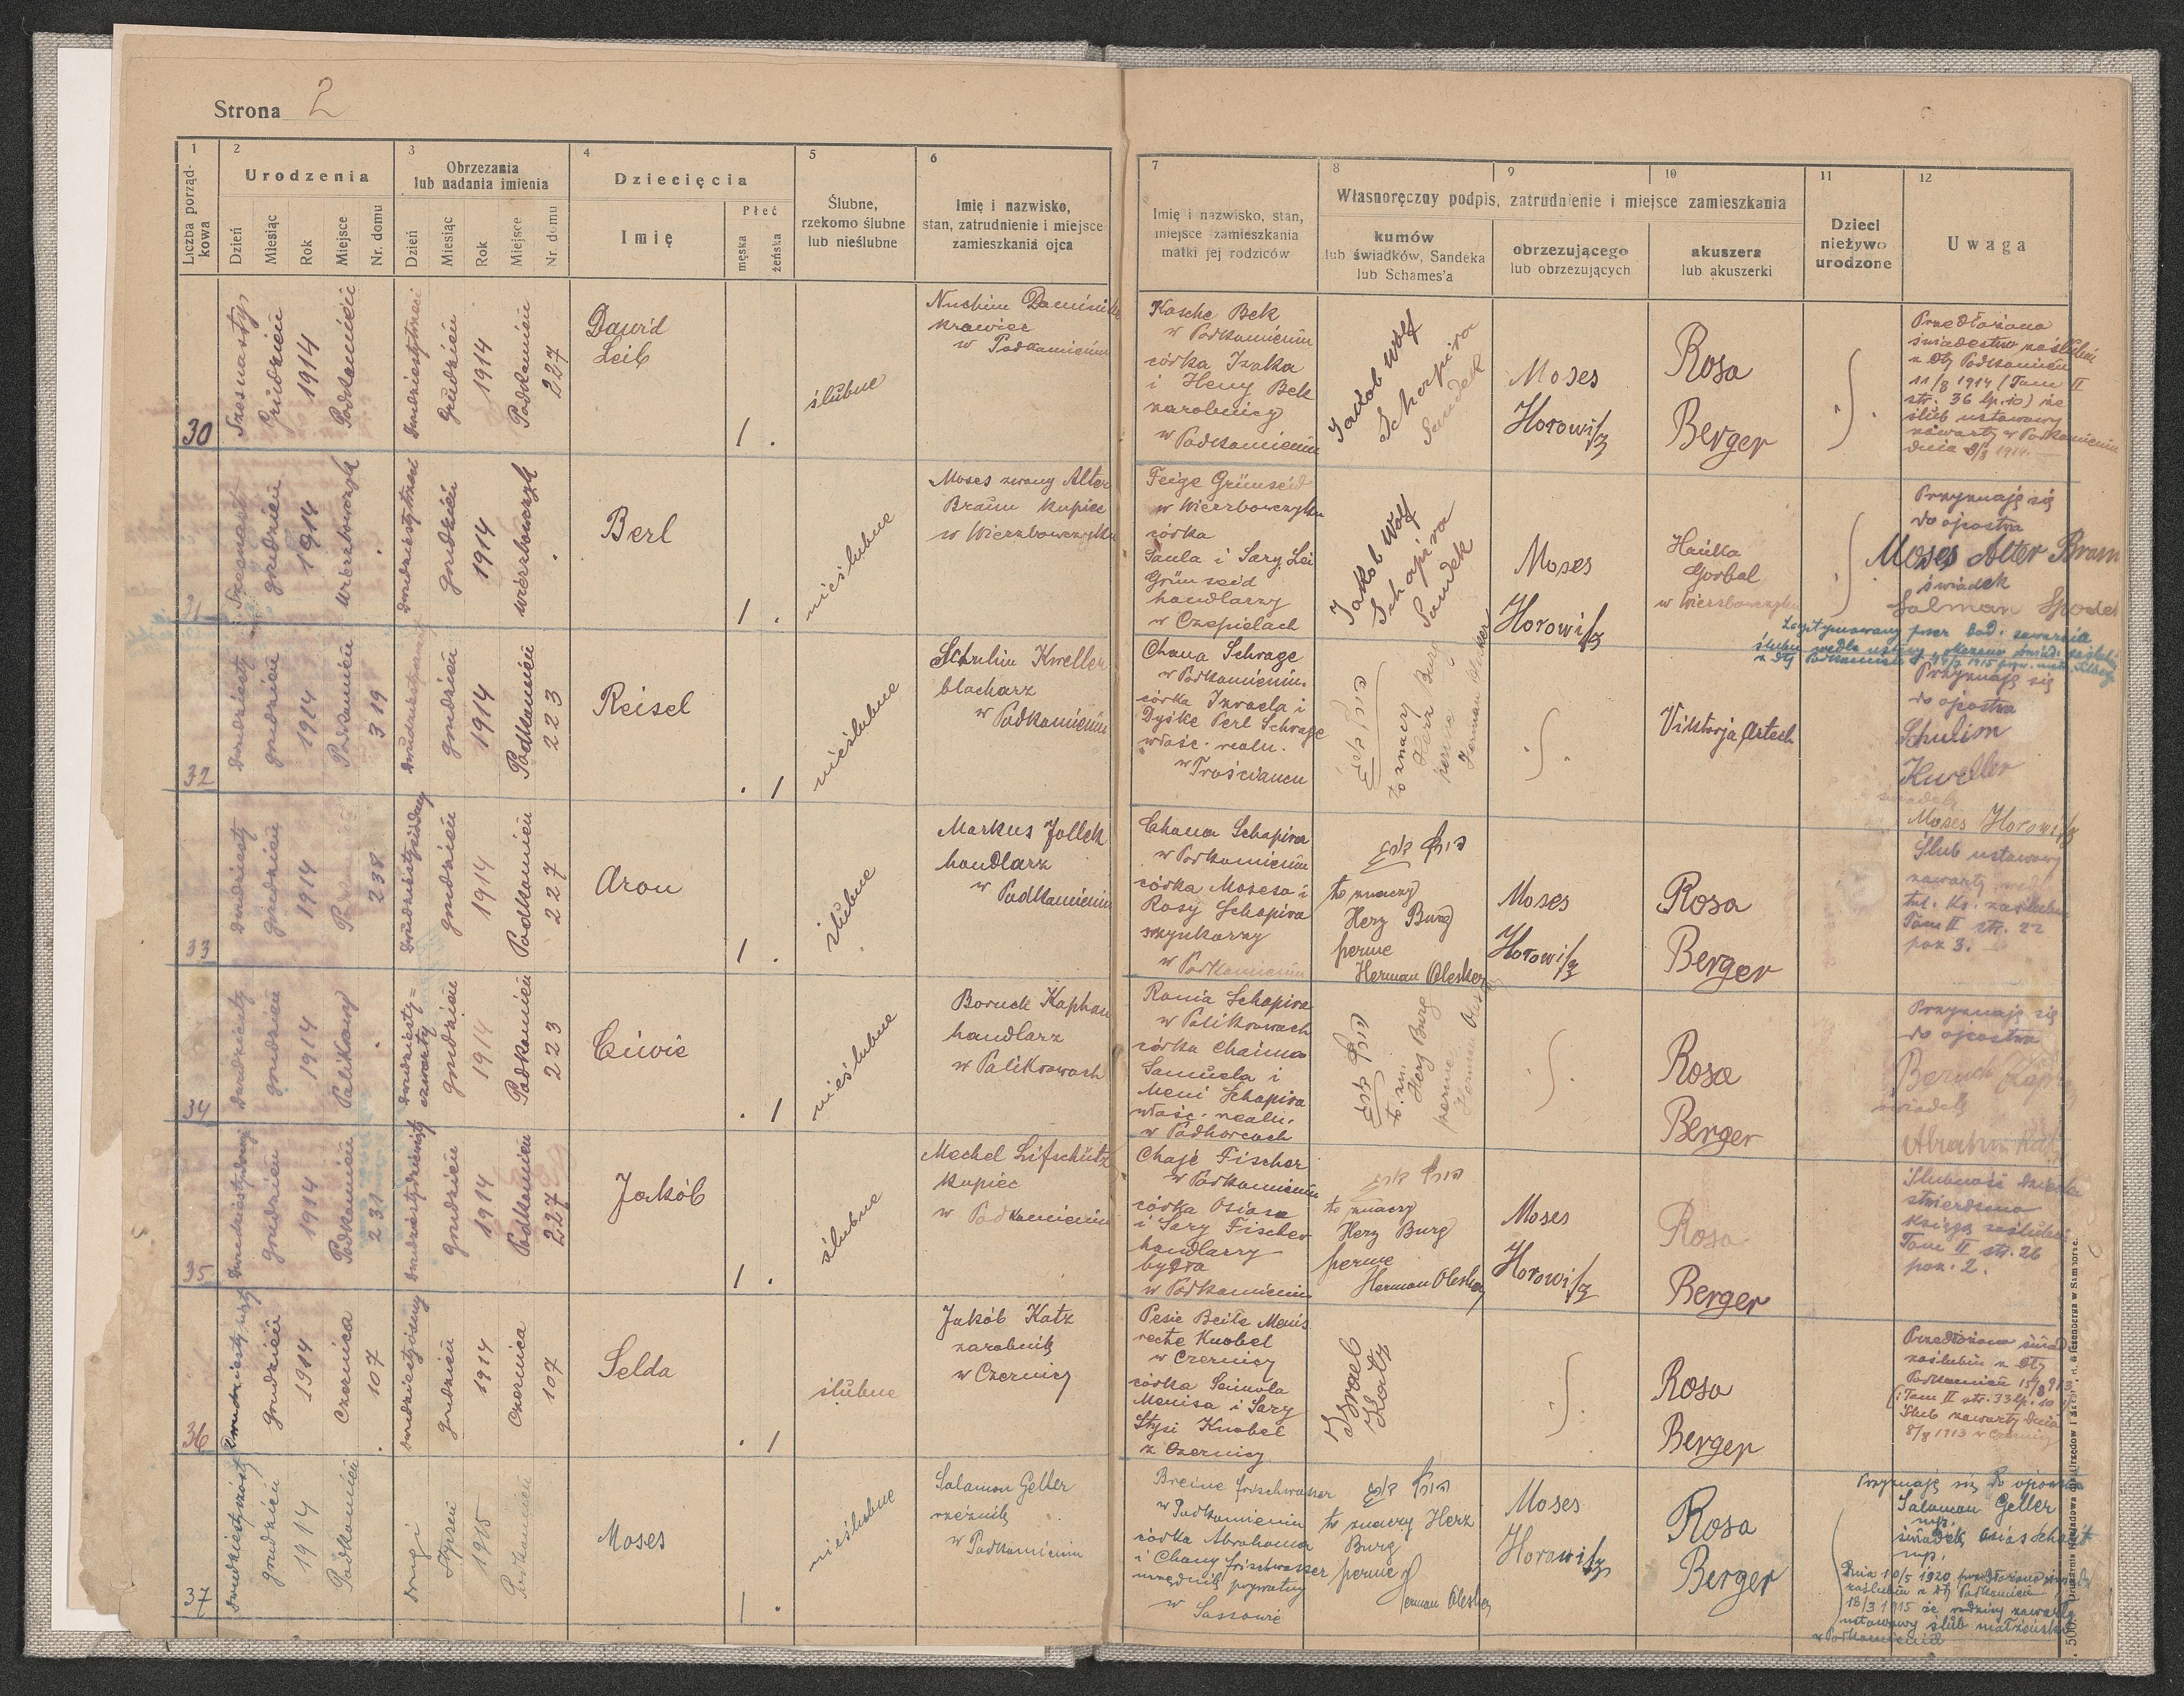 Strona 2
1
2
3
4
5
6
Liczba porząd-
kowa
Urodzenia
Dzień
Miesiąc
Rok
Miejsce
Nr. domu
Obrzezania
lub nadania imienia
Dzień
Miesiąc
Rok
Miejsce
Nr. domu
Dziecięcia
Imię
Płeć
męska
żeńska
Ślubne,
rzekomo ślubne
lub nieślubne
Imię i nazwisko,
stan, zatrudnienie i miejsce
zamieszkania ojca
7
8
9
10
11
12
Imię i nazwisko, stan,
miejsce zamieszkania
matki jej rodziców
Własnoręczny podpis, zatrudnienie i miejsce zamieszkania
kumów
lub świadków, Sandeka
lub Schames'a
obrzezującego
lub obrzezujących
akuszera
lub akuszerki
Dzieci
nieżywo
urodzone
Uwaga
30
Szesnasty
Grudzień
1914
Podkamień
Grudzień
1914
Podkamień
227
Dawid
Leib
1 .
ślubne
Nuchim
krawiec
w Podkamieniu
Kasche Bek
w Podkamieniu
córka Izaka
i Heny Bek
zarobnicy
w Podkamieniu
Jacob Wolf
Schapira
Sandek
Moses
Horowitz
Rosa
Berger
Przedłożono
świadectwo zaślubin
z dtj Podkamień
11/8 1914 (Tom II
str. 36 lp. 10) że
ślub ustawowy
zawarty w Podkamieniu
dnia 9/8 1914.
31
grudzień
1914
Wierzbowczyk
grudzień
1914
Wierzbowczyk
Berl
1 .
nieślubne
Moses zwany Alter
Braun kupiec
w Wierzbowczyku
Feige Grünseid
w Wierzbowczyku
córka
Saula i Sary Lei
Grünseid
handlarzy
w Czepielach
Jakob Wolf
Schapira
Sandek
Moses
Horowitz
Hańka
Gorbal
w Wierzbowczyku
Przyznaję się
do ojcostwa
Moses Alter Braun
świadek
Salman
32
dwudziesty
grudzień
1914
Podkamień
319
grudzień
1914
Podkamień
223
Reisel
. 1
nieślubne
Schulim Kweller
blacharz
w Podkamieniu
Chana Schrage
w Podkamieniu
córka Izraela i
Dyśke Perl Schrage
właśc. realn.
w Trościańcu
הירץ בורג
to znaczy
Herz Burg
perme
Herman Olesker
Viktorja Artech
Przyznaję się
do ojcostwa
Schulim
Kweller
świadek
Moses Horowitz
33
dwudziesty
grudzień
1914
238
dwudziesty siódmy
grudzień
1914
Podkamień
227
Aron
1 .
ślubne
Markus Jollek
handlarz
w Podkamieniu
Chana Schapira
w Podkamieniu
córka Mosesa i
Rosy Schapira
szynkarzy
w Podkamieniu
הירץ בורג
to znaczy
Herz Burg
perme
Herman Olesker
Moses
Horowitz
Rosa
Berger
Ślub ustawowy
zawarty
tut. ks. zaślubin
Tom II str. 22
poz 3.
34
dwudziesty
grudzień
1914
Palikrowy
dwudziesty=
czwarty
grudzień
1914
Podkamień
223
Ciwie
. 1
nieślubne
Boruch Kaphan
handlarz
w Palikrowach
Rania Schapira
w Palikrowach
córka Chaima
Samuela i
Meni Schapira
właśc. realn.
w Podhorcach
הירץ בורג
to. zn.
Herz Burg
perme
Herman Olesker
Rosa
Berger
Przyznaję się
do ojcostwa
Beruch
świadek
35
grudzień
1914
Podkamień
231
grudzień
1914
Podkamień
227
Jakób
1 .
ślubne
Mechel Lifschütz
kupiec
w Podkamieniu
Chaje Fischer
w Podkamieniu
córka Osiasa
i Sary Fischer
handlarzy
bydła
w Podkamieniu
הירץ בורג
to znaczy
Herz Burg
perme
Herman Olesker
Moses
Horowitz
Rosa
Berger
Ślubność dziecka
stwierdzono
księgą zaślubin
Tom II str. 26
poz. 2.
36
grudzień
1914
Czernica
107
grudzień
1914
Czernica
107
Selda
. 1
ślubne
Jakób Katz
zarobnik
w Czernicy
Pesie Beile Menis
recte Knobel
w Czernicy
córka
Menisa i Sary
Stysi Knobel
z Czernicy
Israel
Katz
Rosa
Berger
Przedłożono świad.
zaślubin z dtj
Podkamień 15/8 913
(Tom II str. 33 lp. 10
Ślub zawarty dnia
8/8 1913 w Czernicy
37
dwudziesty szósty
grudzień
1914
Podkamień
drugi
styczeń
1915
Podkamień
Moses
1 .
nieślubne
Salamon Geller
rzeźnik
w Podkamieniu
Breine Frischwasser
w Podkamieniu
córka Abrahama
i Chany Frischwasser
urzędnik prywatny
w Sassowie
הירץ בורג
to znaczy Herz
Burg
perme
Herman Olesker
Moses
Horowitz
Rosa
Berger
Przyznaję się do ojcostwa
Salamon Geller
mp.
świadek Osias
mp.
Dnia 10/5 1920 przedłożono
zaślubin z dtj Podkamień
18/3 1915 że rodziny zawarły
ustawowy ślub małżeński
w Podkamieniu